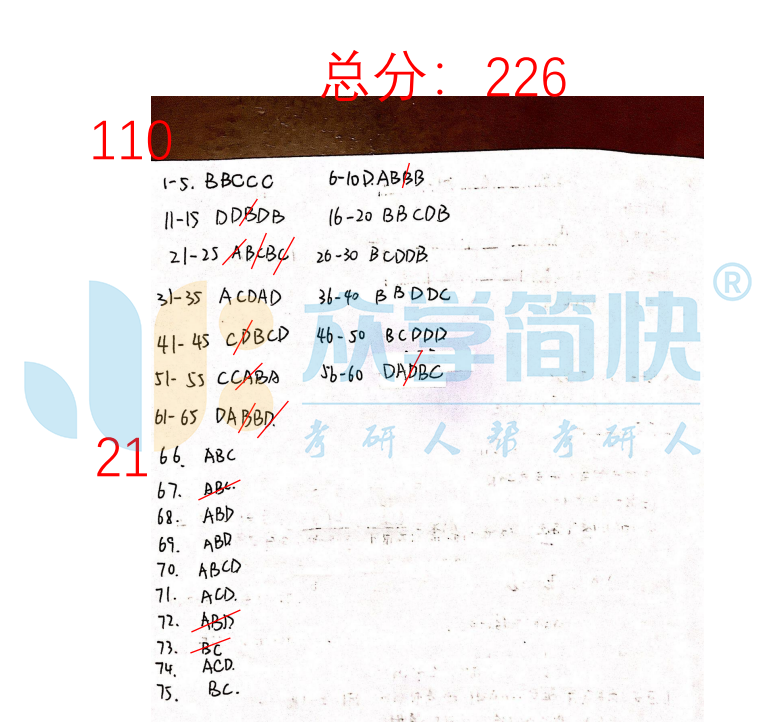 总分：226
110
1-5. BBCCC 6-10 D.ABBB
11-15 DDBDB 16-20 BBCDB
21-25 ABCBC 26-30 BCDDB.
31-35 ACDAD 36-40 BBDDC
41-45 CDBCD 46-50 BCDDD
51-55 CCABA 56-60 DADBC
61-65 DABBD.
21
66. ABC
67. ABC.
68. ABD
69. ABD
70. ABCD
71. ACD.
72. ABD
73. BC
74. ACD.
75. BC.
众学简快®
考研人帮考研人